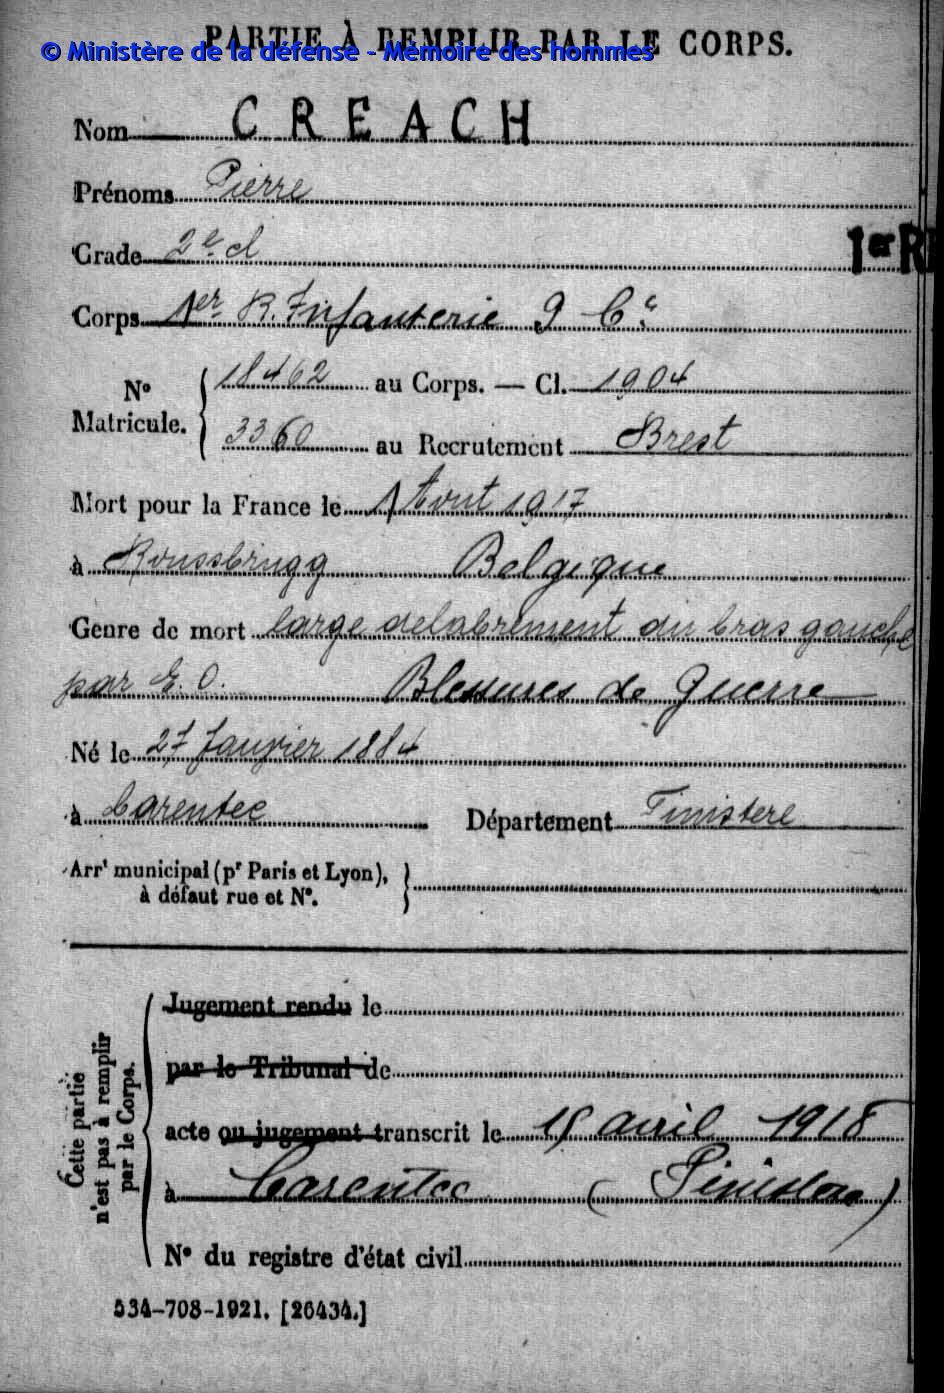 PARTIE À REMPLIR PAR LE CORPS.
© Ministère de la défense - Mémoire des hommes
Nom CREACH
Prénoms Pierre
Grade 2e cl
1er RI
Corps 1er R. Infanterie 9 Cie
N° Matricule. 18462 au Corps. — Cl. 1904
3360 au Recrutement Brest
Mort pour la France le 1 Aout 1917
à Roussbrugg Belgique
Genre de mort large delabrement du bras gauche
par E. O. Blessures de Guerre
Né le 27 Janvier 1884
à Carentec Département Finistere
Arrt municipal (pr Paris et Lyon),
à défaut rue et N°.
Cette partie
n'est pas à remplir
par le Corps.
Jugement rendu le
par le Tribunal de
acte ou jugement transcrit le 15 avril 1918
à Carentec (Finistère)
N° du registre d'état civil
534-708-1921. [26434.]